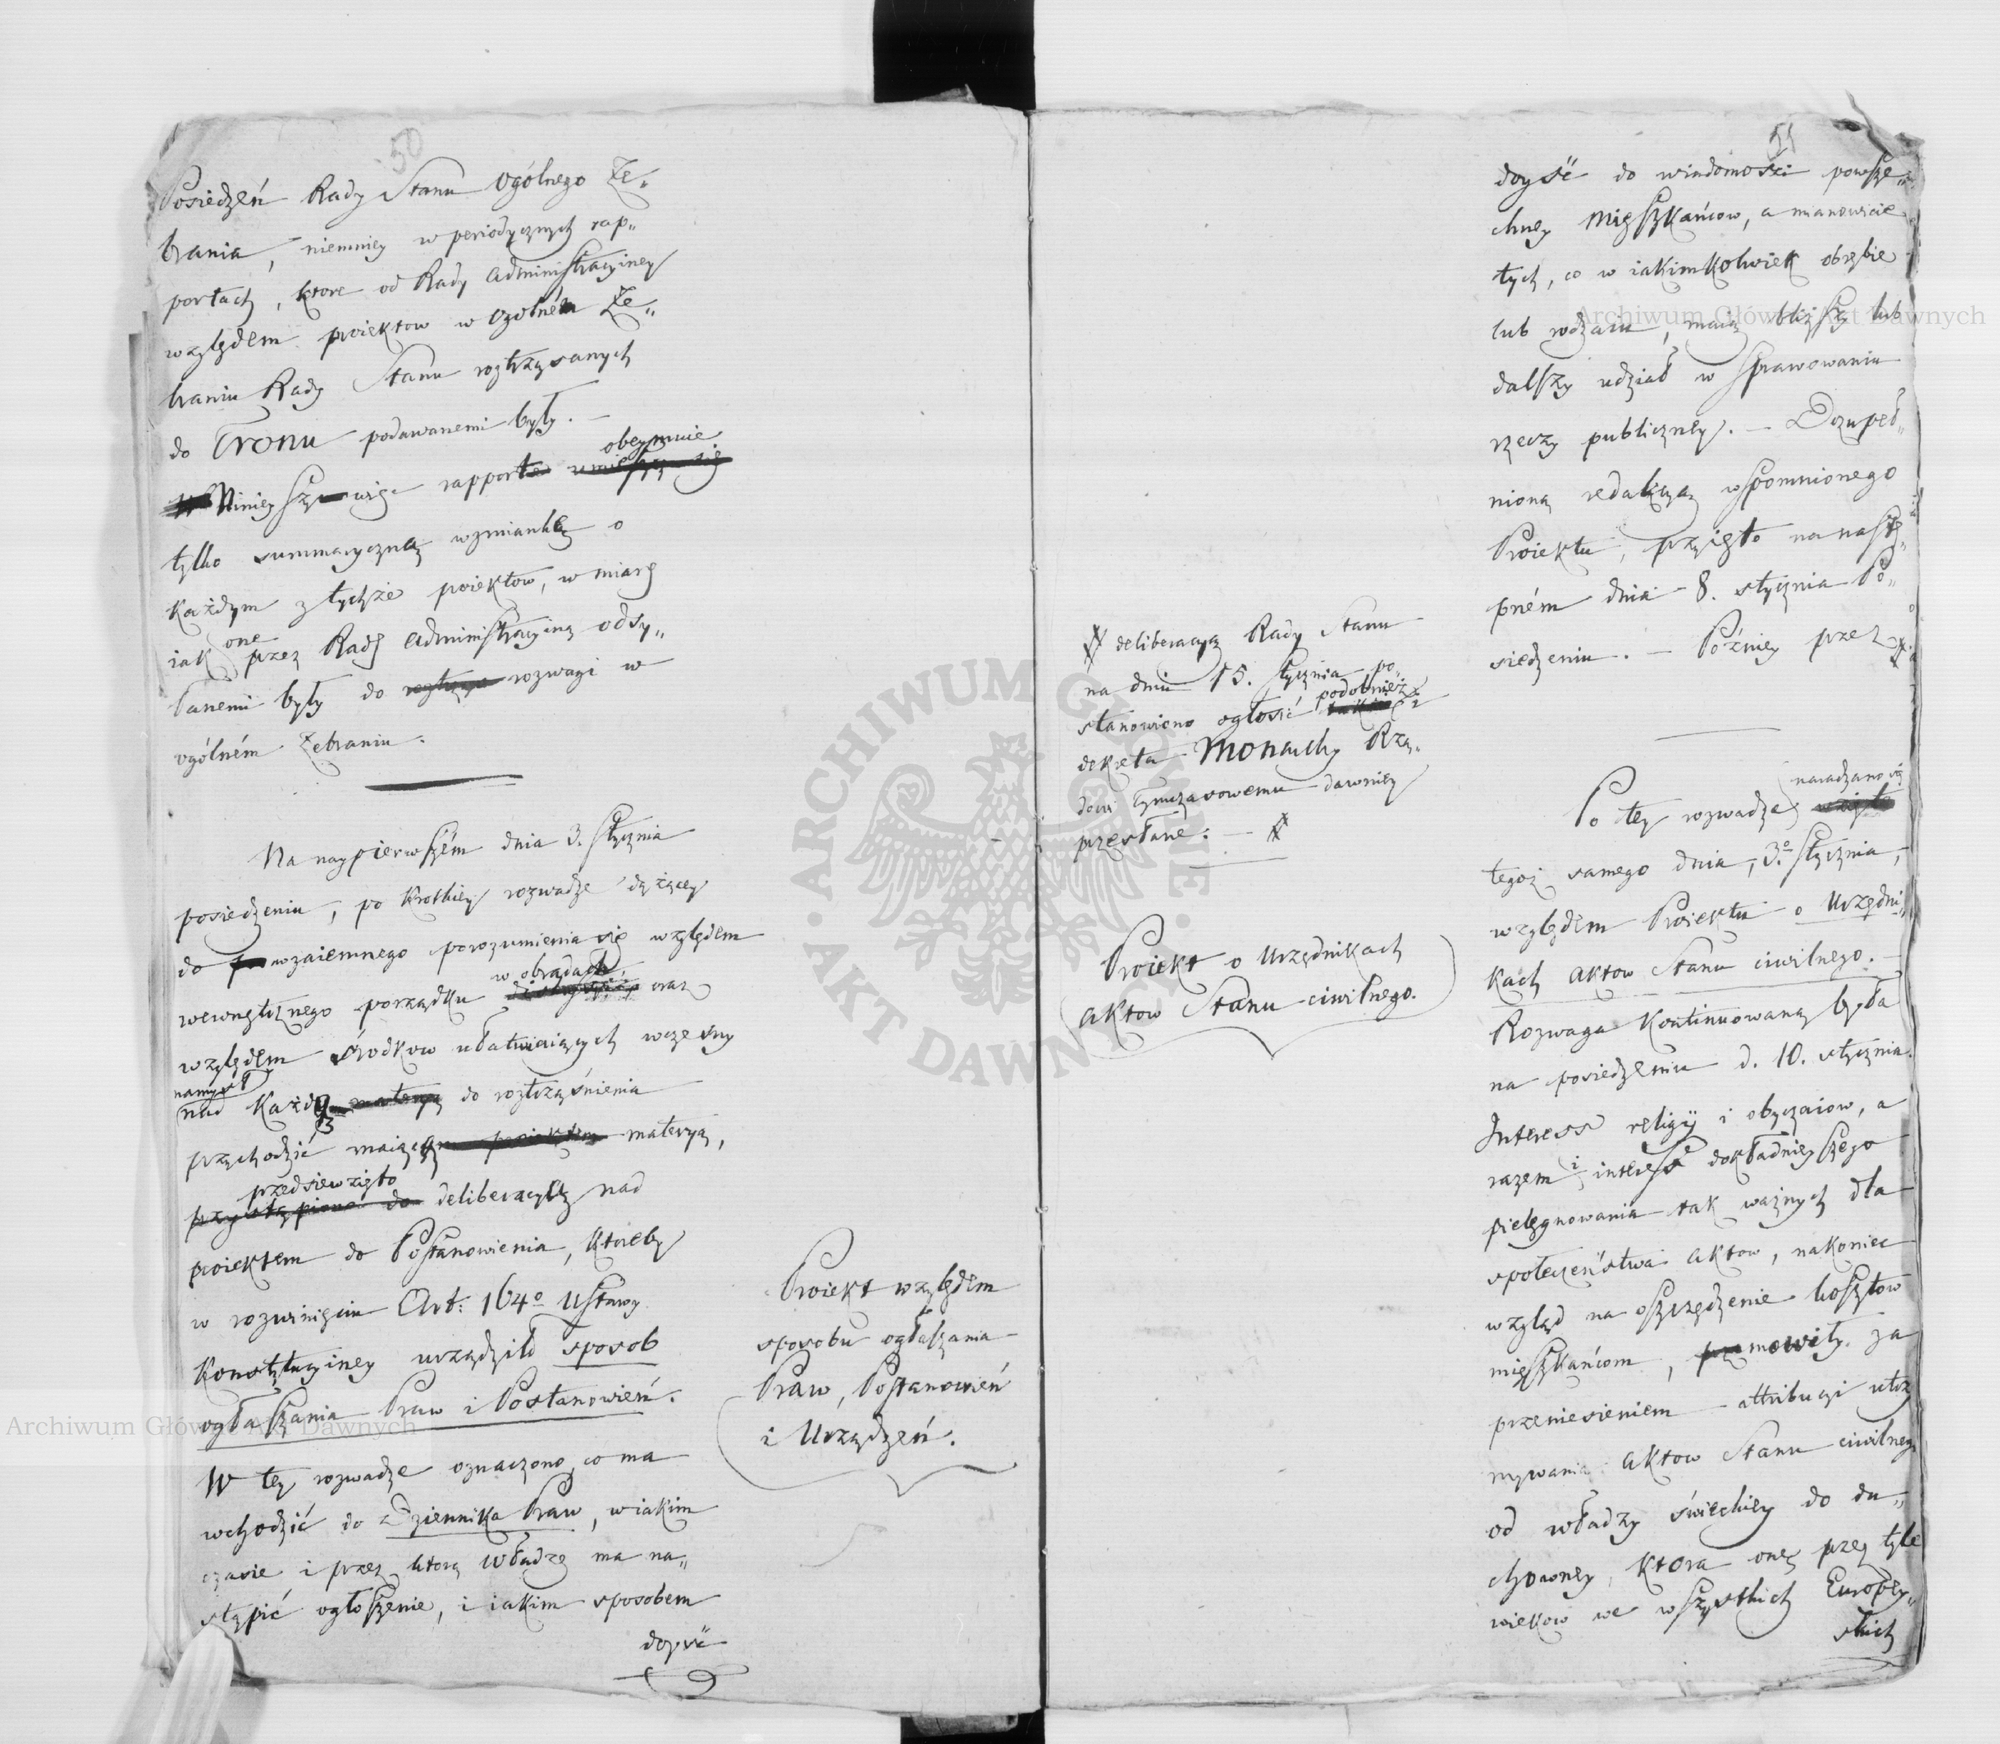 50
Posiedzeń Rady Stanu Ogólnego Ze„
brania, niemniey w periodycznych rap„
portach, ktore od Rady Administracyiney
względem proiektow w Ogolném Ze„
braniu Rady Stanu roztrząsanych
do Tronu podawanemi były. —
obeymuie
Ninieyszy więc rapport
tylko summaryczną wzmiankę o
każdym z tychże proiektow, w miarę
iak one przez Radę Administracyiną odsy„
łanemi były do rozwagi w
ogólném Zebraniu.
Na naypierwszém dnia 3. Stycznia
posiedzeniu, po krotkiey rozwadze dążącey
do wzaiemnego porozumienia się względem
w obradach,
wewnętrznego porządku oraz
względem srodkow ułatwiaiących wczesny
namysł
nad każdą do roztrząśnienia
przychodzić maiącą materyą,
przedsięwzięto
przystąpiono do deliberacyę nad
proiektem do Postanowienia, ktoreby
w rozwinięciu Art: 164º Ustawy
Konstytucyiney urządziło sposob
ogłaszania Praw i Postanowień.
W tey rozwadze oznaczono, co ma
wchodzić do Dziennika Praw, w iakim
czasie i przez ktorą Władzę ma na„
stąpić ogłoszenie, i iakim sposobem
doyść
Proiekt względem
sposobu ogłaszania
Praw, Postanowień
i Urządzeń.
deliberacyą Rady Stanu
na dniu 15. stycznia po„
stanowiono ogłosić podobnież
dekreta Monarchy Rzą„
dowi Tymczasowemu dawniey
przesłane. —
Proiekt o Urzędnikach
Aktow Stanu ciwilnego.
51
doyść do wiadomości powsze„
chney Mieszkańcow, a mianowicie
tych, co w iakimkolwiek obrębie
lub rodzaiu, maią bliższy lub
dalszy udział w sprawowaniu
rzeczy publiczney. — Dopeł„
nioną redakcyą wspomnionego
Proiektu, przyięto na nastę„
pném dnia 8. stycznia Po„
siedzeniu. — Później przez
Po tey rozwadze, naradzano się
tegoż samego dnia, 3º Stycznia,
względem Proiektu o Urzędni„
kach Aktow Stanu ciwilnego. —
Rozwaga kontinuowaną była
na posiedzeniu d. 10. stycznia.
Interess religij i obyczaiow, a
razem i interess dokładnieyszego
pielęgnowania tak ważnych dla
społeczeństwa Aktow, nakoniec
wzgląd na oszczędzenie kosztow
mieszkańcom, mowiły za
przeniesieniem attribucyi utrzy
mywania Aktow Stanu ciwilnego
od władzy świeckiey do du„
chowney, ktora onę przez tyle
wiekow we wszystkich Europey„
skich
ARCHIWUM GŁÓWNE AKT DAWNYCH
Archiwum Główne Akt Dawnych
Archiwum Główne Akt Dawnych